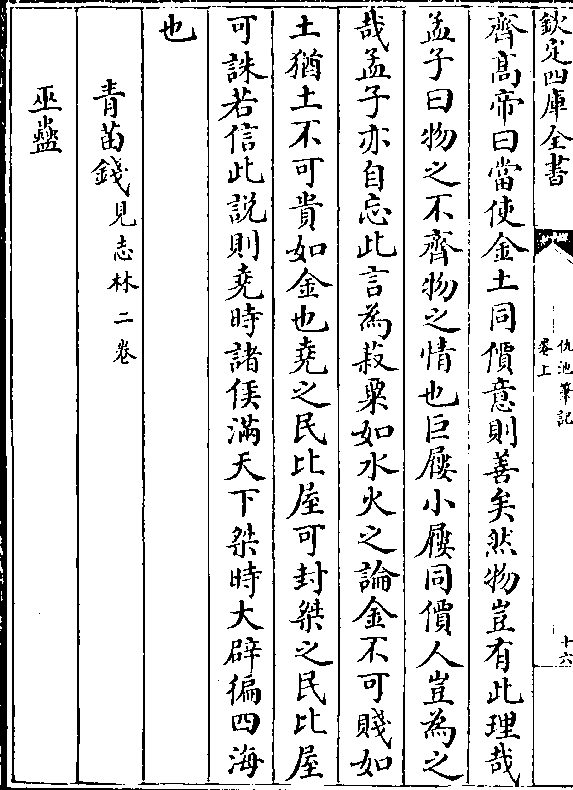 欽定四庫全書
仇池筆記
卷上
十六
齊高帝曰當使金土同價意則善矣然物豈有此理哉
孟子曰物之不齊物之情也巨屨小屨同價人豈為之
哉孟子亦自忘此言為菽粟如水火之論金不可賤如
土猶土不可貴如金也堯之民比屋可封桀之民比屋
可誅若信此說則堯時諸侯滿天下桀時大辟徧四海
也
青苗錢見志林二卷
巫蠱